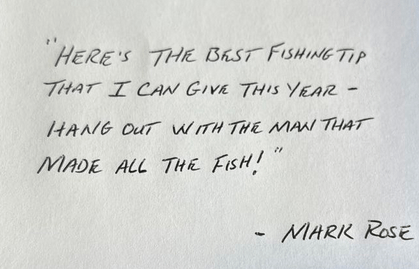 "HERE'S THE BEST FISHING TIP
THAT I CAN GIVE THIS YEAR -
HANG OUT WITH THE MAN THAT
MADE ALL THE FISH!"
- MARK ROSE